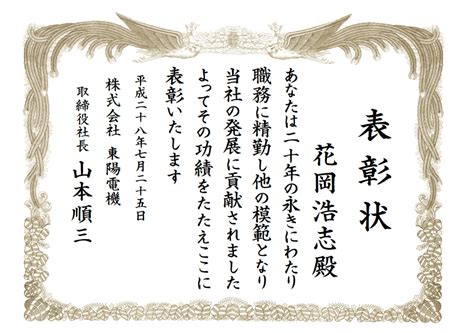 表彰状
花岡浩志殿
あなたは二十年の永きにわたり
職務に精勤し他の模範となり
当社の発展に貢献されました
よってその功績をたたえここに
表彰いたします
平成二十八年七月二十五日
株式会社 東陽電機
取締役社長 山本順三